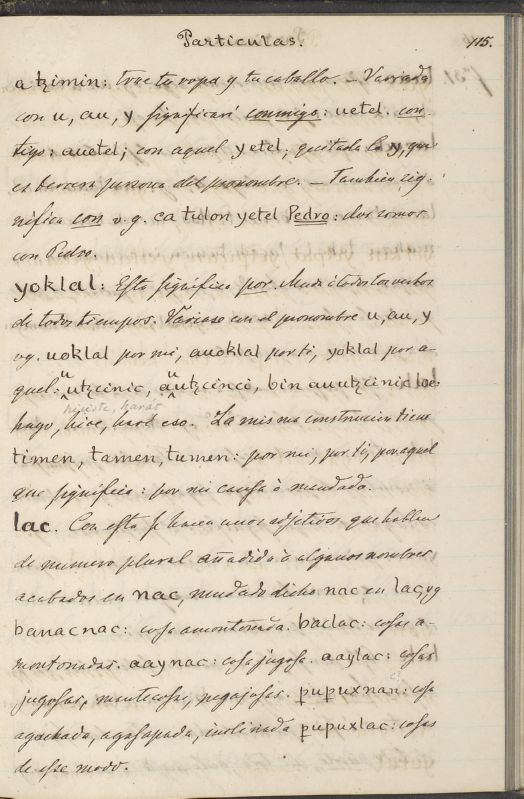 Particulas. 115.
a tzimin: trae tu ropa y tu caballo. – Variada
con u, au, y significari conmigo: uetel. con-
tigo: auetel; con aquel yetel; quitada la y, que
es tercera persona del pronombre. – Tambien sig-
nifica con v. g. ca tulon yetel Pedro: dos somos
con Pedro.
yoklal: Esta significa por. Muda à todos los verbos
de todos tiempos. Variase con el pronombre u, au, y
vg. uoklal por mi, auoklal por ti, yoklal por a-
quel: utzcinic, autzcinci, bin auutzcinic loe:
u u
hago, hice, haré eso. La misma construccion tiene
hiciste, harás
timen, tamen, tumen: por mi, por ti, por aquel
que significa: por mi causa ò mandado.
lac. Con esta se hacen unos adjetivos que hablan
de numero plural añadida à algunos nombres
acabados en nac, mudado dicho nac en lac, vg
banacnac: cosa amontonada. baclac: cosas a-
montonadas. aaynac: cosa jugosa. aaylac: cosas
jugosas, mantecosas, pegajosas. pupuxnac: cosa
agachada, agasapada, inclinada pupuxlac: cosas
de esse modo.